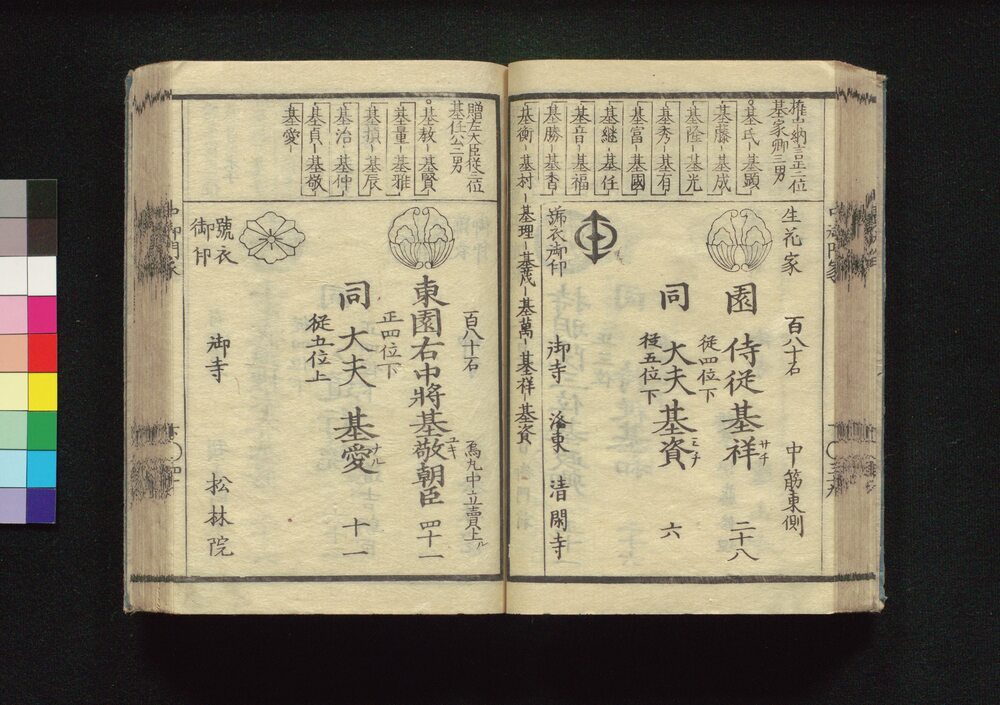 権中納言正二位
基家卿三男
基氏-基顯
基藤-基成
基隆-基光
基秀-基有
基富-基國
基継-基任
基音-基福
基勝-基香
基衡-基村-基理-基茂-基萬-基祥-基資
生花家 百八十石 中筋東側
園侍従基祥 サチ 二十八
従四位下
同大夫基資 ミチ 六
従五位下
號衣御印 御寺 洛東 清閑寺
贈左大臣従一位
基任公三男
基教-基賢
基量-基雅
基楨-基辰
基治-基仲
基貞-基敬
基愛
百八十石 烏丸中立賣上ル
東園右中將基敬朝臣 ユキ 四十一
正四位下
同大夫基愛 ナル 十一
従五位上
號衣
御印
御寺 松林院